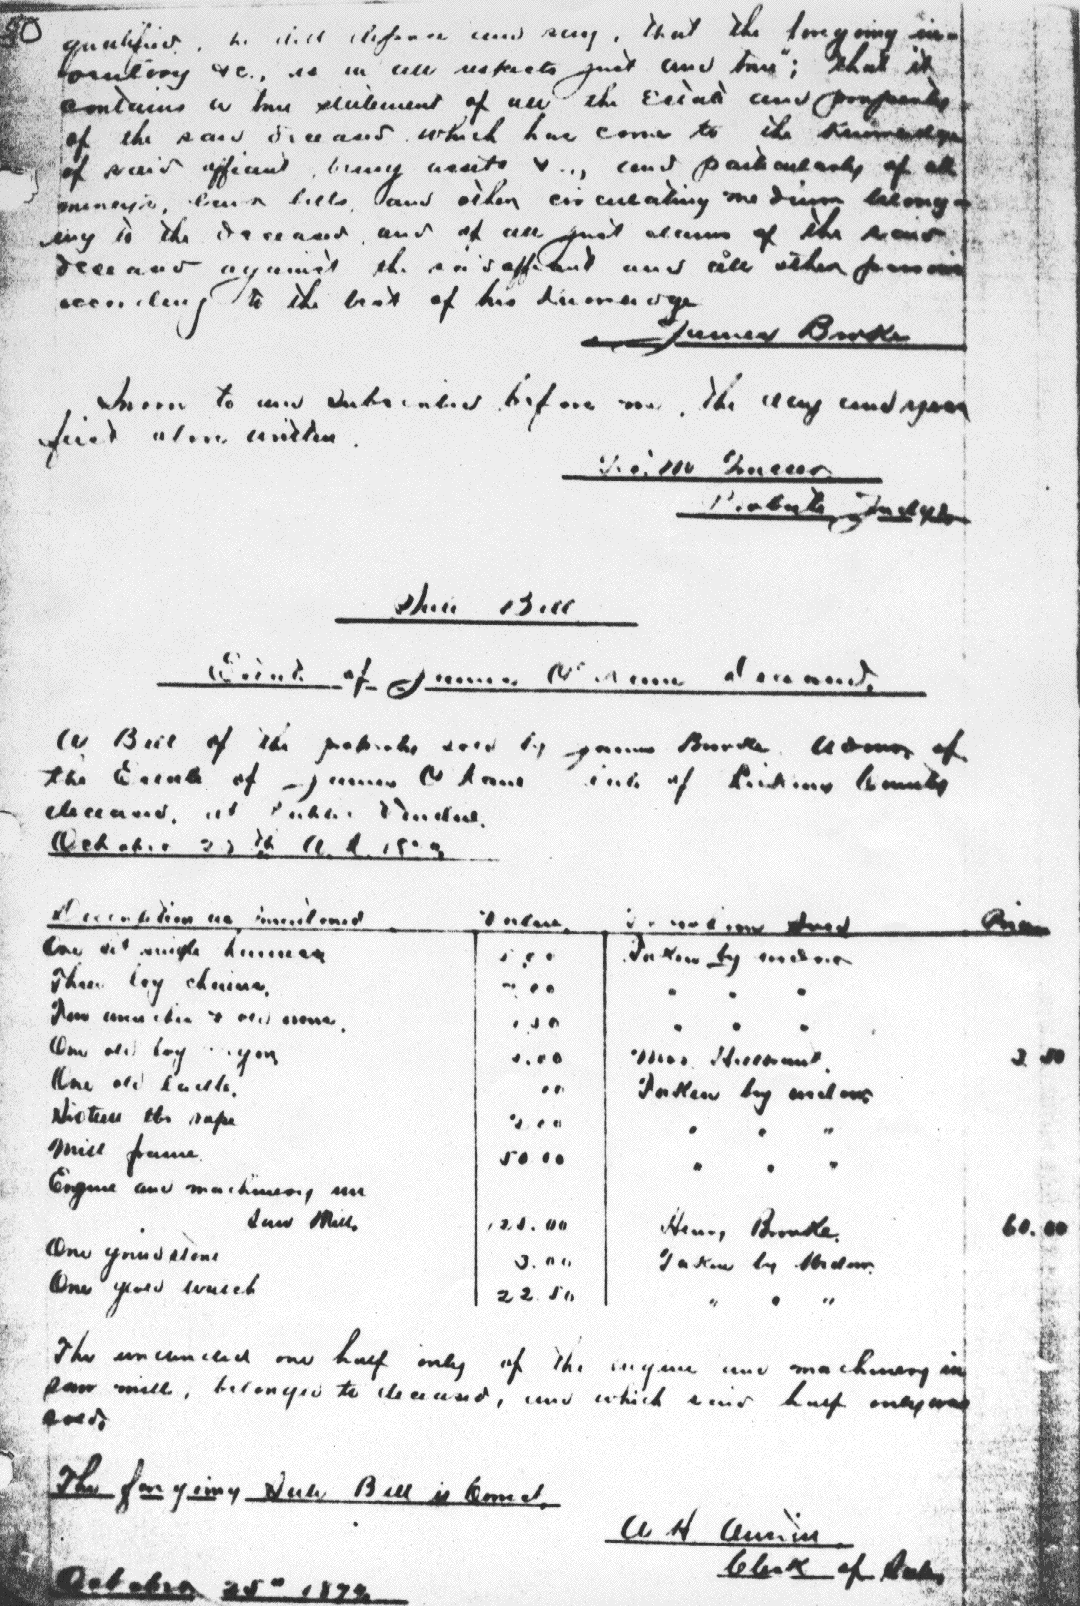 50
qualified, he did depose and say, that the foregoing in-
ventory &c., is in all respects just and true; that it
contains a true statement of all the Estate and property
of the said deceased which has come to the knowledge
of said affiant, being assets &c., and particularly of all
moneys, bank bills, and other circulating medium belong-
ing to the deceased, and of all just claims of the said
deceased against the said affiant and all other persons
according to the best of his knowledge
James Burke
Sworn to and subscribed before me, the day and year
first above written.
Probate Judge
Sale Bill
Estate of James deceased.
A Bill of the property sold by James Burke Admr. of
the Estate of James late of County
deceased, at Public Vendue.
October A.D.
Description as inventoried Value. To whom Sold Price
One set single harness Taken by widow
Three log chains. " " "
" " "
One old log Mrs. 3.50
One old Taken by widow
Sixteen lbs rope " " "
Mill frame. 50 00 " " "
Engine and machinery in
Saw Mill. 125.00 Henry Burke. 60.00
One grindstone 3.00 Taken by Widow.
One gold watch 22.50 " " "
The undivided one half only of the engine and machinery in
saw mill, belonged to deceased, and which said half only was
sold.
The foregoing Sale Bill is Correct.
A H Austin
Clerk of Sale
October 25th 1872